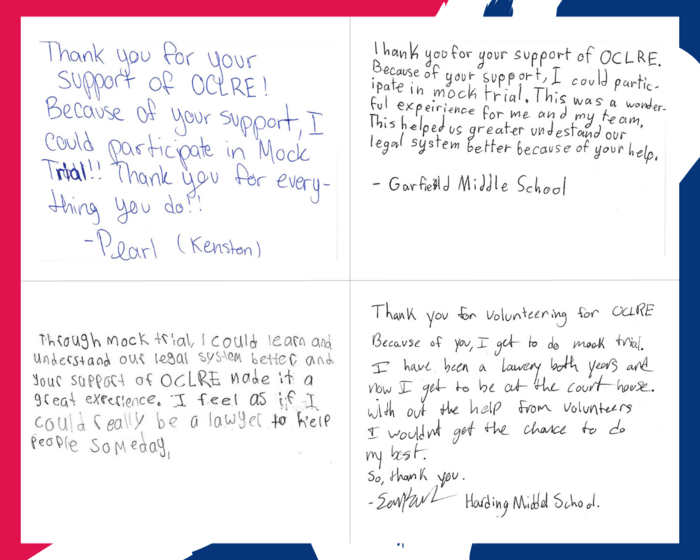 Thank you for your
support of OCLRE!
Because of your support, I
could participate in Mock
Trial!! Thank you for every-
thing you do!!
-Pearl (Kenston)
Thank you for your support of OCLRE.
Because of your support, I could partic-
ipate in mock trial. This was a wonder-
ful expeirience for me and my team.
This helped us greater undestand our
legal system better because of your help.
- Garfield Middle School
Through mock trial, I could learn and
understand our legal system better and
your support of OCLRE made it a
great experience. I feel as if I
could really be a lawyer to help
people someday.
Thank you for volunteering for OCLRE
Because of you, I get to do mock trial.
I have been a lawery both years and
now I get to be at the court house.
with out the help from volunteers
I wouldnt get the chance to do
my best.
So, thank you.
- Harding Middel School.